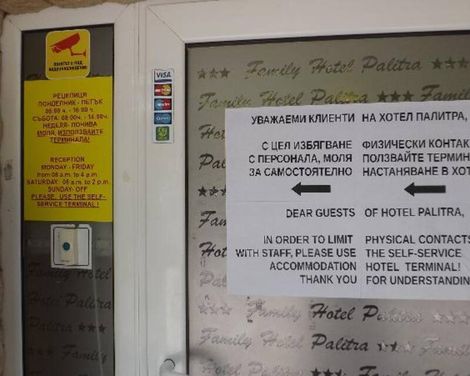 РЕЦЕПЦИЯ
ПОНДЕЛНИК - ПЕТЪК
08:00 ч. - 16:00 ч.
СЪБОТА: 08:00ч. - 14:00ч.
НЕДЕЛЯ- ПОЧИВА
МОЛЯ, ИЗПОЛЗВАЙТЕ
ТЕРМИНАЛА!
RECEPTION
MONDAY - FRIDAY
from 08 a.m. to 4 p.m
SATURDAY: 08 a.m. to 2 p.m.
SUNDAY- OFF
PLEASE, USE THE SELF-
SERVICE TERMINAL!
VISA
Family Hotel Palitra
Family Hotel Palitra
УВАЖАЕМИ КЛИЕНТИ НА ХОТЕЛ ПАЛИТРА,
С ЦЕЛ ИЗБЯГВАНЕ ФИЗИЧЕСКИ КОНТАК
С ПЕРСОНАЛА, МОЛЯ ПОЛЗВАЙТЕ ТЕРМИН
ЗА САМОСТОЯТЕЛНО НАСТАНЯВАНЕ В ХОТ
DEAR GUESTS OF HOTEL PALITRA,
IN ORDER TO LIMIT PHYSICAL CONTACTS
WITH STAFF, PLEASE USE THE SELF-SERVICE
ACCOMMODATION HOTEL TERMINAL!
THANK YOU FOR UNDERSTANDIN
Family Hotel
Family Hotel Palitra
Family Hotel Palitra
Family